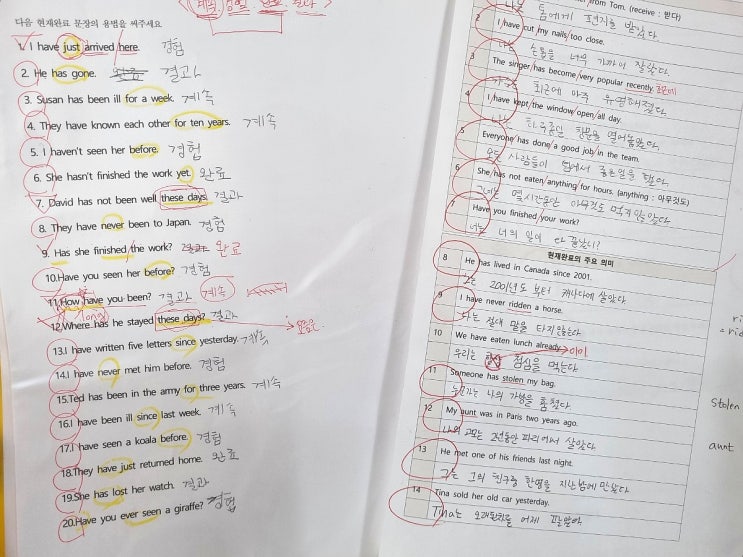 다음 현재완료 문장의 용법을 써주세요
계속 경험 완료 결과
1. I have just arrived here. 경험
2. He has gone. 결과
3. Susan has been ill for a week. 계속
4. They have known each other for ten years. 계속
5. I haven't seen her before. 경험
6. She hasn't finished the work yet. 완료
7. David has not been well these days. 결과
8. They have never been to Japan. 경험
9. Has she finished the work? 결과 완료
10.Have you seen her before? 경험
11.How have you been? 결과 계속
long
12.Where has he stayed these days? 결과
13.I have written five letters since yesterday. 계속
14.I have never met him before. 경험
15.Ted has been in the army for three years. 계속
16.I have been ill since last week. 계속
17.I have seen a koala before. 경험
18.They have just returned home. 완료
19.She has lost her watch. 결과
20.Have you ever seen a giraffe? 경험
from Tom. (receive : 받다)
편지를 받았다.
2 I have cut my nails too close.
손톱을 너무 가까이 잘랐다.
3 The singer has become very popular recently. 최근에
최근에 아주 유명해졌다.
4 I have kept the window open all day.
나는 하루종일 창문을 열어놓았다.
5 Everyone has done a good job in the team.
모든 사람들이 팀에서 좋은일을 했다.
6 She has not eaten anything for hours. (anything : 아무것도)
그녀는 몇시간동안 아무것도 먹지 않았다
7 Have you finished your work?
너는 너의 일이 다 끝났니?
현재완료의 주요 의미
8 He has lived in Canada since 2001.
그는 2001년도 부터 캐나다에 살았다
9 I have never ridden a horse.
나는 절대 말을 타지않는다
10 We have eaten lunch already. 이미
우리는 점심을 먹는다
11 Someone has stolen my bag.
누군가는 나의 가방을 훔쳤다.
stolen
12 My aunt was in Paris two years ago.
나의 고모는 2년동안 파리에서 살았다.
aunt
13 He met one of his friends last night.
그는 그의 친구중 한명을 지난밤에 만났다
14 Tina sold her old car yesterday.
Tina는 오래된차를 어제 팔았다